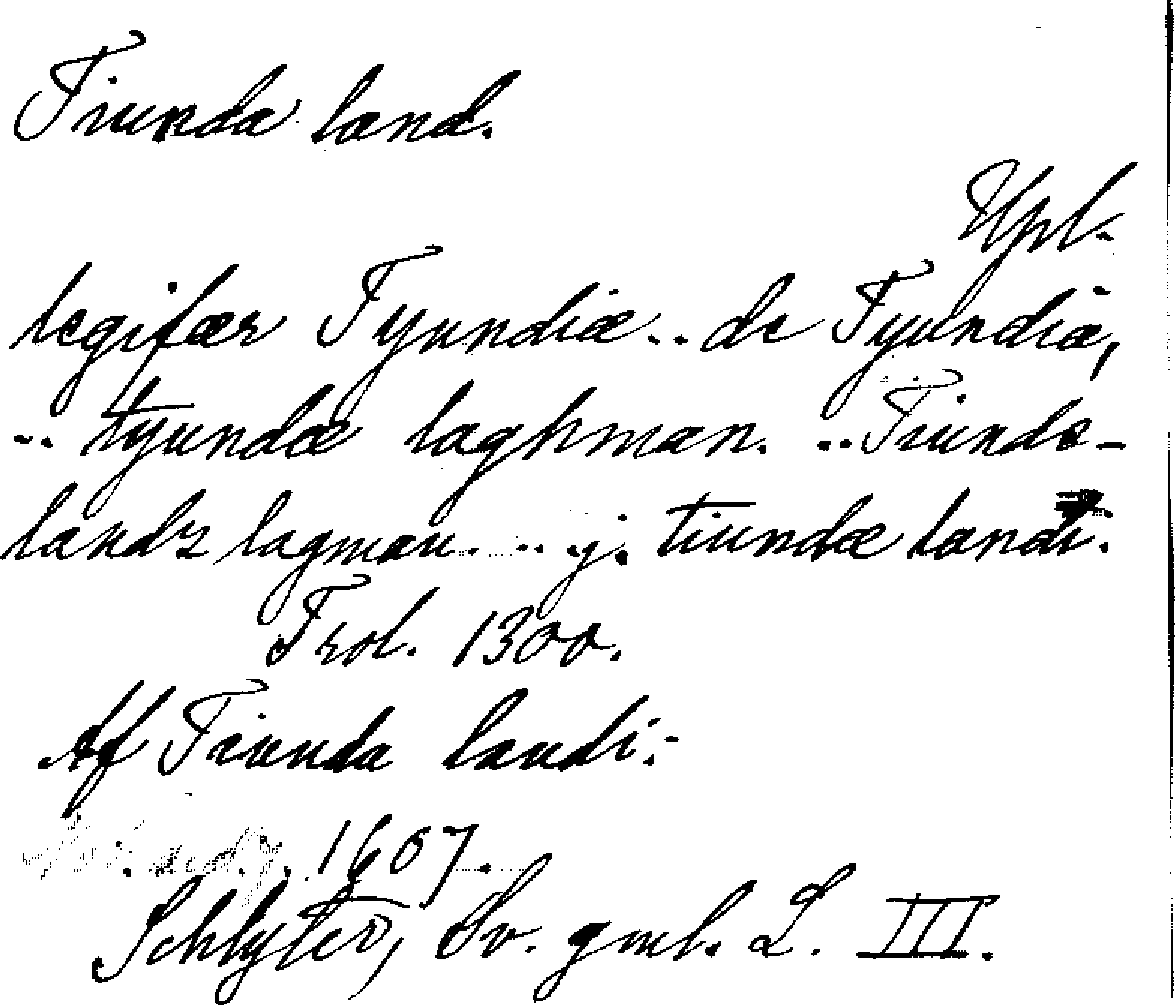 Tiunda land.
Upl.
legifær Tyundiæ .. de Tyundiæ,
.. tyundæ laghman. .. Tiunda-
landz lagman. .. j. tiundæ landi.
Prol. 1300.
Af Tiunda landi:-
1607.
Schlyter, Sv. gml. L. III.